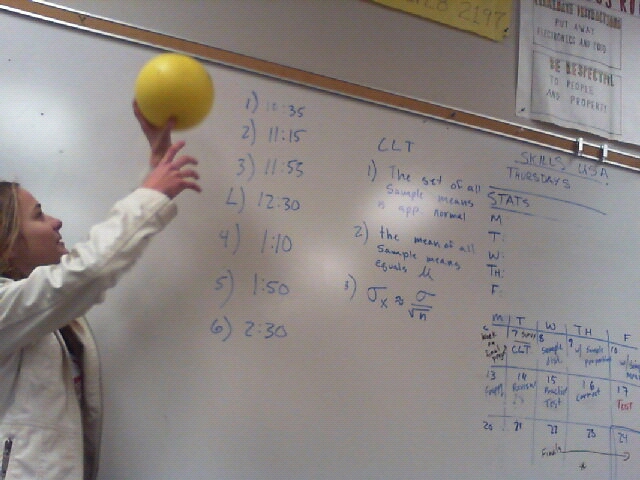 2197
PUT AWAY
ELECTRONICS AND FOOD
BE RESPECTFUL
TO PEOPLE
AND PROPERTY
1) 10:35
2) 11:15
3) 11:55
L) 12:30
4) 1:10
5) 1:50
6) 2:30
CLT
1) The set of all
Sample means
is app. normal
2) the mean of all
Sample means
equals μ
3) σx ≈ σ/√n
SKILLS USA
THURSDAYS
STATS
M:
T:
W:
TH:
F:
M T W TH F
7 8 9 10
CLT Sample w/ Sample
13 14 15 16 17
Review Practice
Test TEST
20 21 22 23 24
Finals